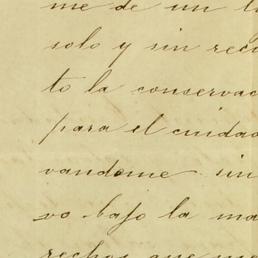 me de un
solo y sin
to la conservac
para el cuidad
vandome sin
vo bajo la ma
rechos que